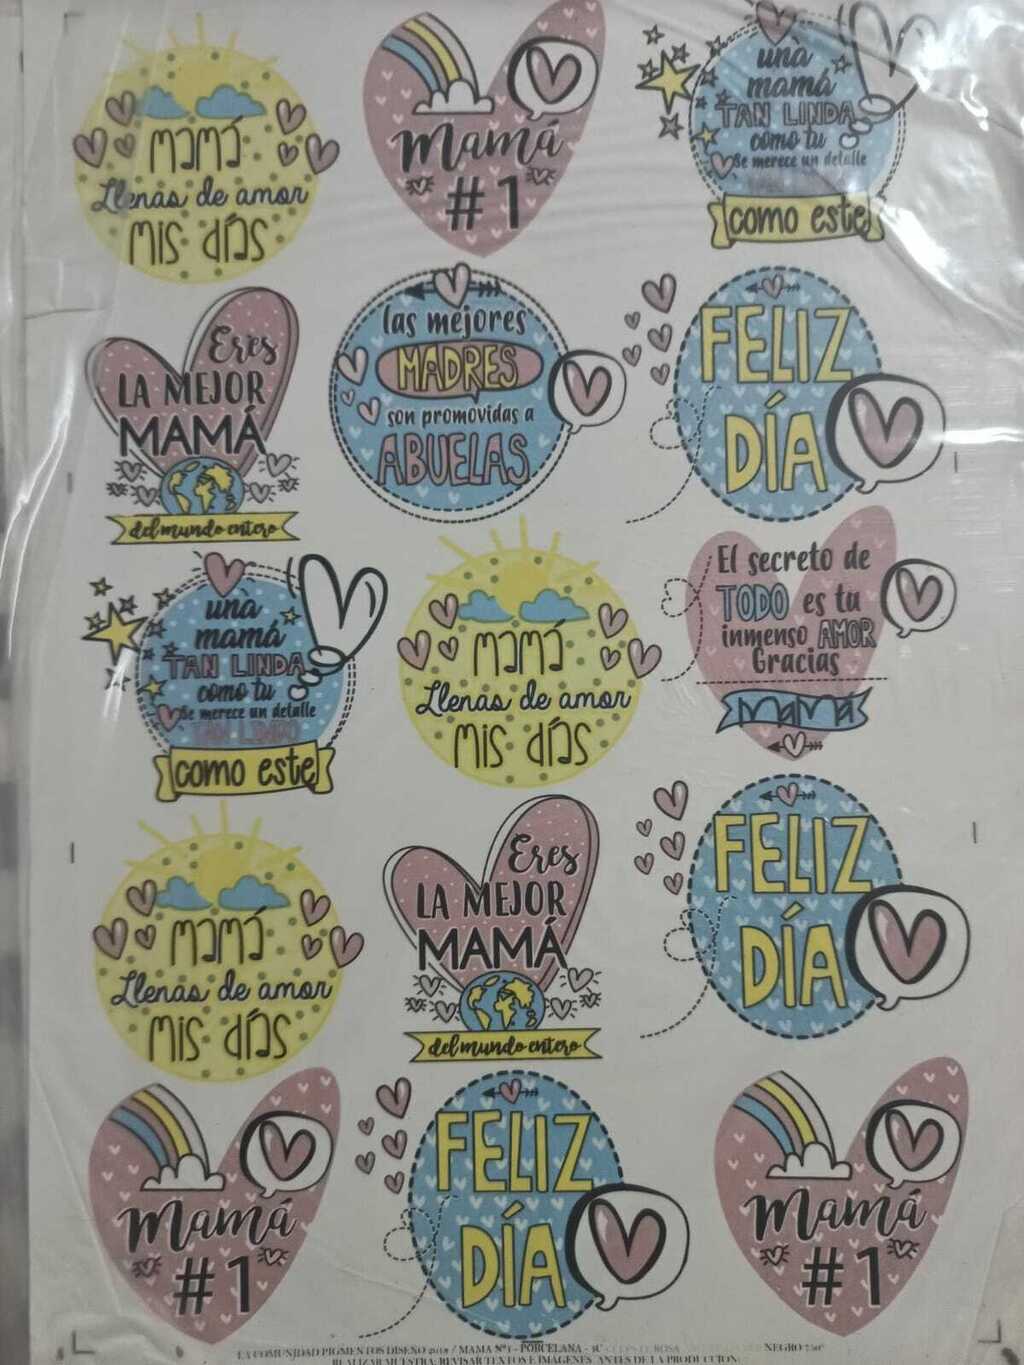 MAMÁ
Llenas de amor
MIS DÍAS
Mamá
#1
una
mamá
TAN LINDA
como tu
Se merece un detalle
como este
Eres
LA MEJOR
MAMÁ
del mundo entero
las mejores
MADRES
son promovidas a
ABUELAS
FELIZ
DÍA
una
mamá
TAN LINDA
como tu
Se merece un detalle
TAN LINDO
como este
MAMÁ
Llenas de amor
MIS DÍAS
El secreto de
TODO es tu
inmenso AMOR
Gracias
MAMÁ
MAMÁ
Llenas de amor
MIS DÍAS
Eres
LA MEJOR
MAMÁ
del mundo entero
FELIZ
DÍA
Mamá
#1
FELIZ
DÍA
Mamá
#1
LA COMUNIDAD PIGMENTOS DISEÑO 2018 / MAMA Nº1 - PORCELANA - NEGRO 750º
REALIZAR MUESTRA, REVISAR TEXTOS E IMAGENES ANTES DE LA PRODUCCION